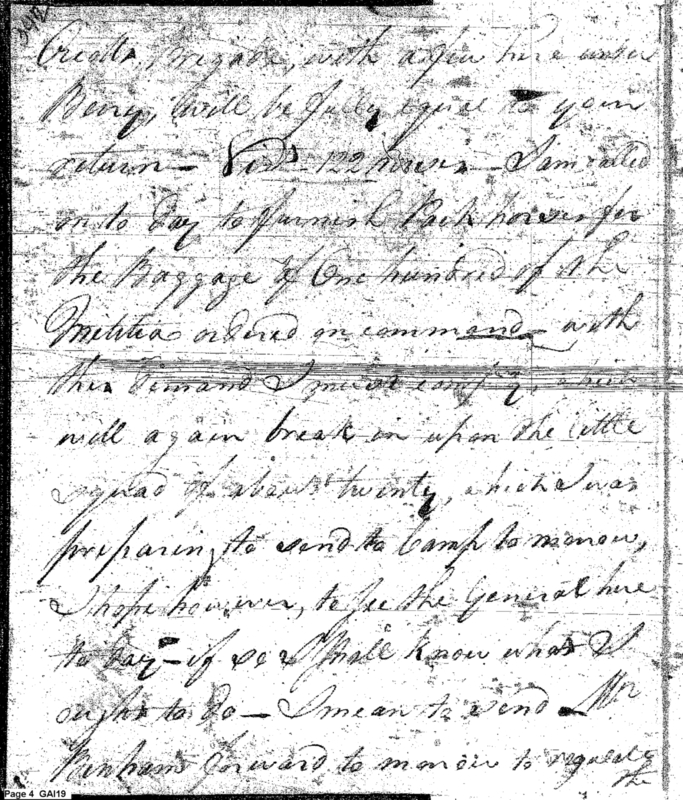 Brigade, with a few here under
Berry, will be fully equal to your
return — 122 horses — I am called
on to day to furnish Pack horses for
the Baggage of One hundred of the
Militia ordered on command — with
this demand I must comply, which
will again break in upon the little
squad of about twenty, which I was
preparing to send to Camp to morrow,
I hope however, to see the General here
to day — if so I shall know what I
ought to do — I mean to send Mr
Benham forward to morrow to regulate
the
Page 4 GAI19